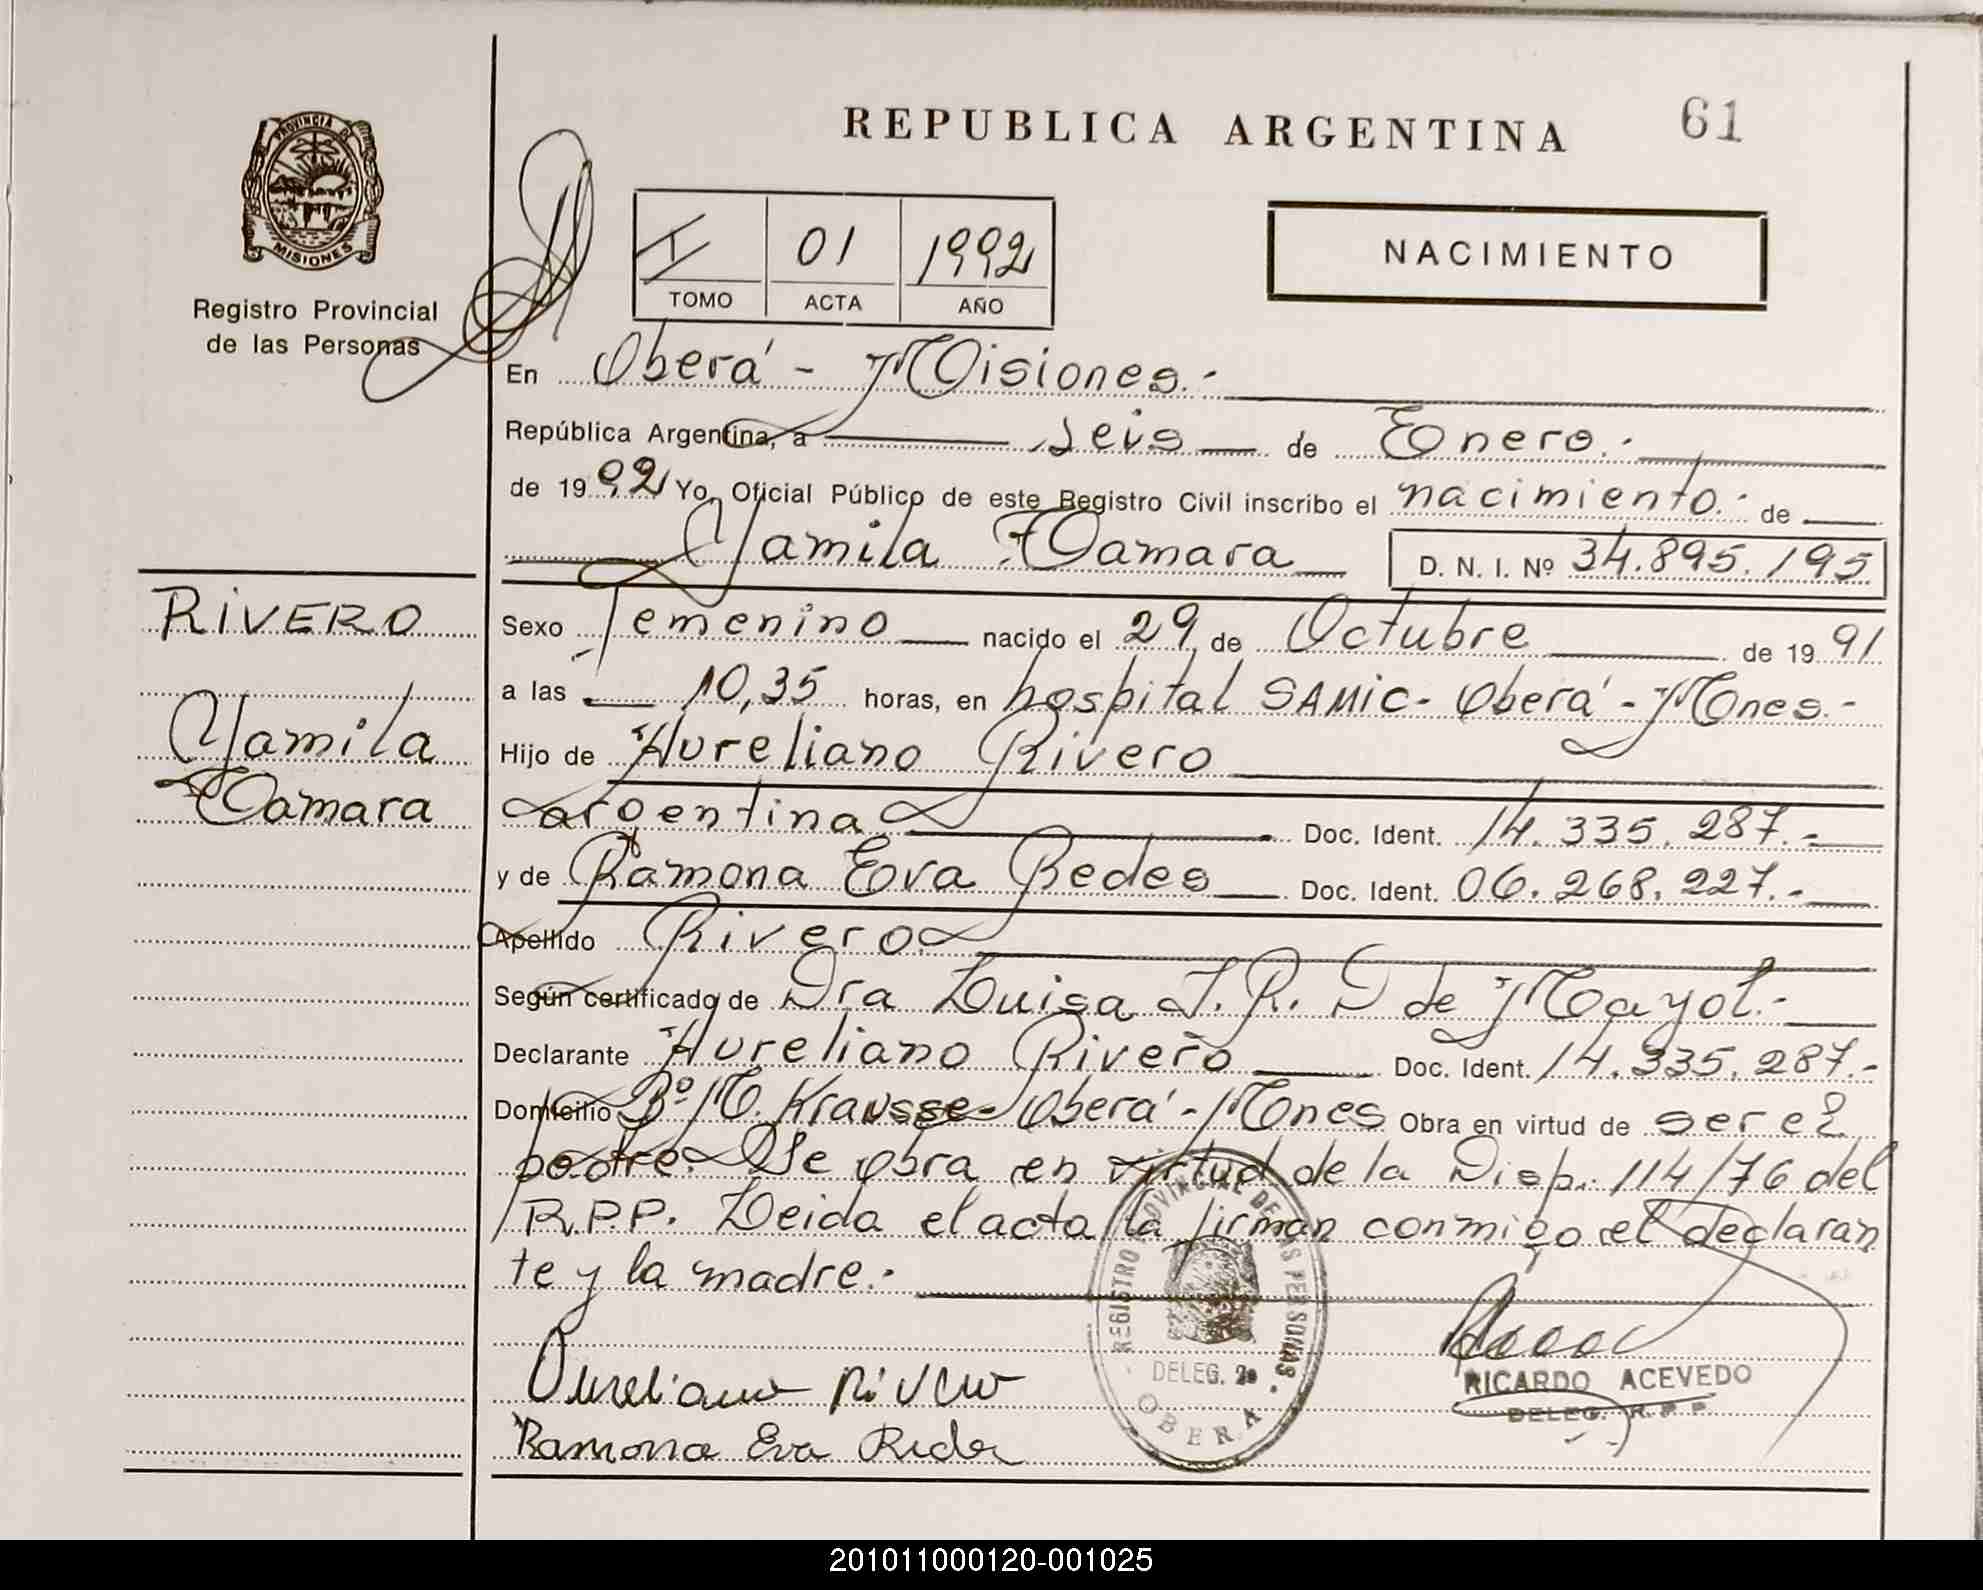 REPUBLICA ARGENTINA
61
PROVINCIA DE
MISIONES
Registro Provincial
de las Personas
I 01 1992
TOMO ACTA AÑO
NACIMIENTO
En Oberá - Misiones.-
República Argentina, a seis de Enero.-
de 1992 Yo, Oficial Público de este Registro Civil inscribo el nacimiento.- de
Yamila Tamara D. N. I. Nº 34.895.195
RIVERO
Yamila
Tamara
Sexo Femenino nacido el 29 de Octubre de 1991
a las 10,35 horas, en hospital SAMIC- Oberá - Mnes.-
Hijo de Aureliano Rivero
argentina Doc. Ident. 14.335.287.-
y de Ramona Eva Redes Doc. Ident. 06.268.227.-
Apellido Rivero
Según certificado de Dra Luisa J. R. D de Mayol.-
Declarante Aureliano Rivero Doc. Ident. 14.335.287.-
Domicilio Bº M. Krausse- Oberá - Mnes Obra en virtud de ser el
padre. Se obra en virtud de la Disp. 114/76 del
R.P.P. Leida el acta la firman conmigo el declaran
te y la madre.-
REGISTRO PROVINCIAL DE LAS PERSONAS
DELEG. 2a
OBERA
Aureliano Rivero
Ramona Eva
RICARDO ACEVEDO
DELEG. R.P.P.
201011000120-001025